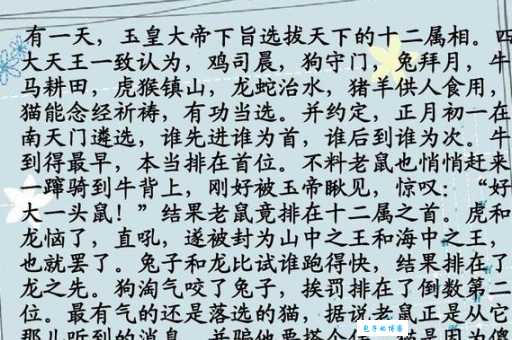 有一天，玉皇大帝下旨选拔天下的十二属相。四
大天王一致认为，鸡司晨，狗守门，兔拜月，牛
马耕田，虎猴镇山，龙蛇治水，猪羊供人食用，
猫能念经祈祷，有功当选。并约定，正月初一在
南天门遴选，谁先进谁为首，谁后到谁为次。牛
到得最早，本当排在首位。不料老鼠也悄悄赶来
一蹿骑到牛背上，刚好被玉帝瞅见，惊叹：“好
大一头鼠！”结果老鼠竟排在十二属之首。虎和
龙恼了，直吼，遂被封为山中之王和海中之王，
也就罢了。兔子和龙比试谁跑得快，结果排在了
龙之先。狗淘气咬了兔子，挨罚排在了倒数第二
位。最有气的还是落选的猫，据说老鼠正是从它
那儿听到的消息，并骗他要搭个伴，